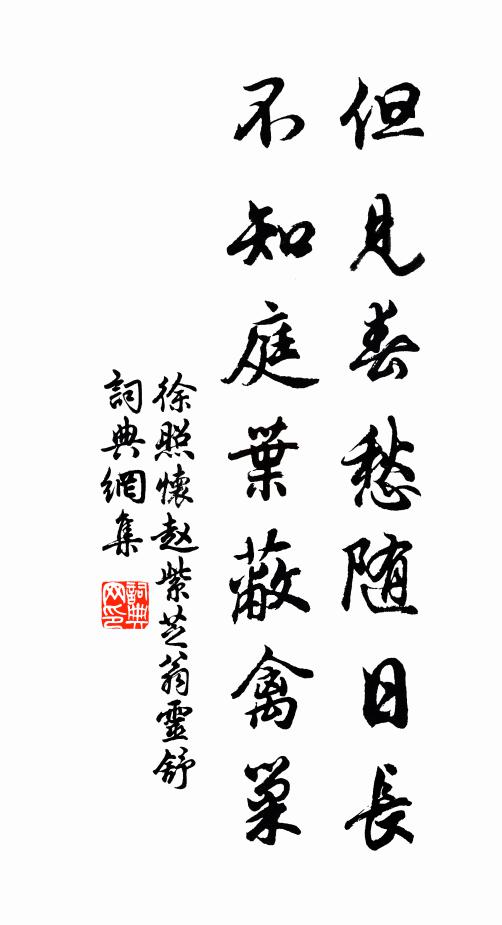 但見春愁随日長
不知庭葉蔽禽巢
徐照懷赵紫芝翁靈舒
詞典網集
詞典网印